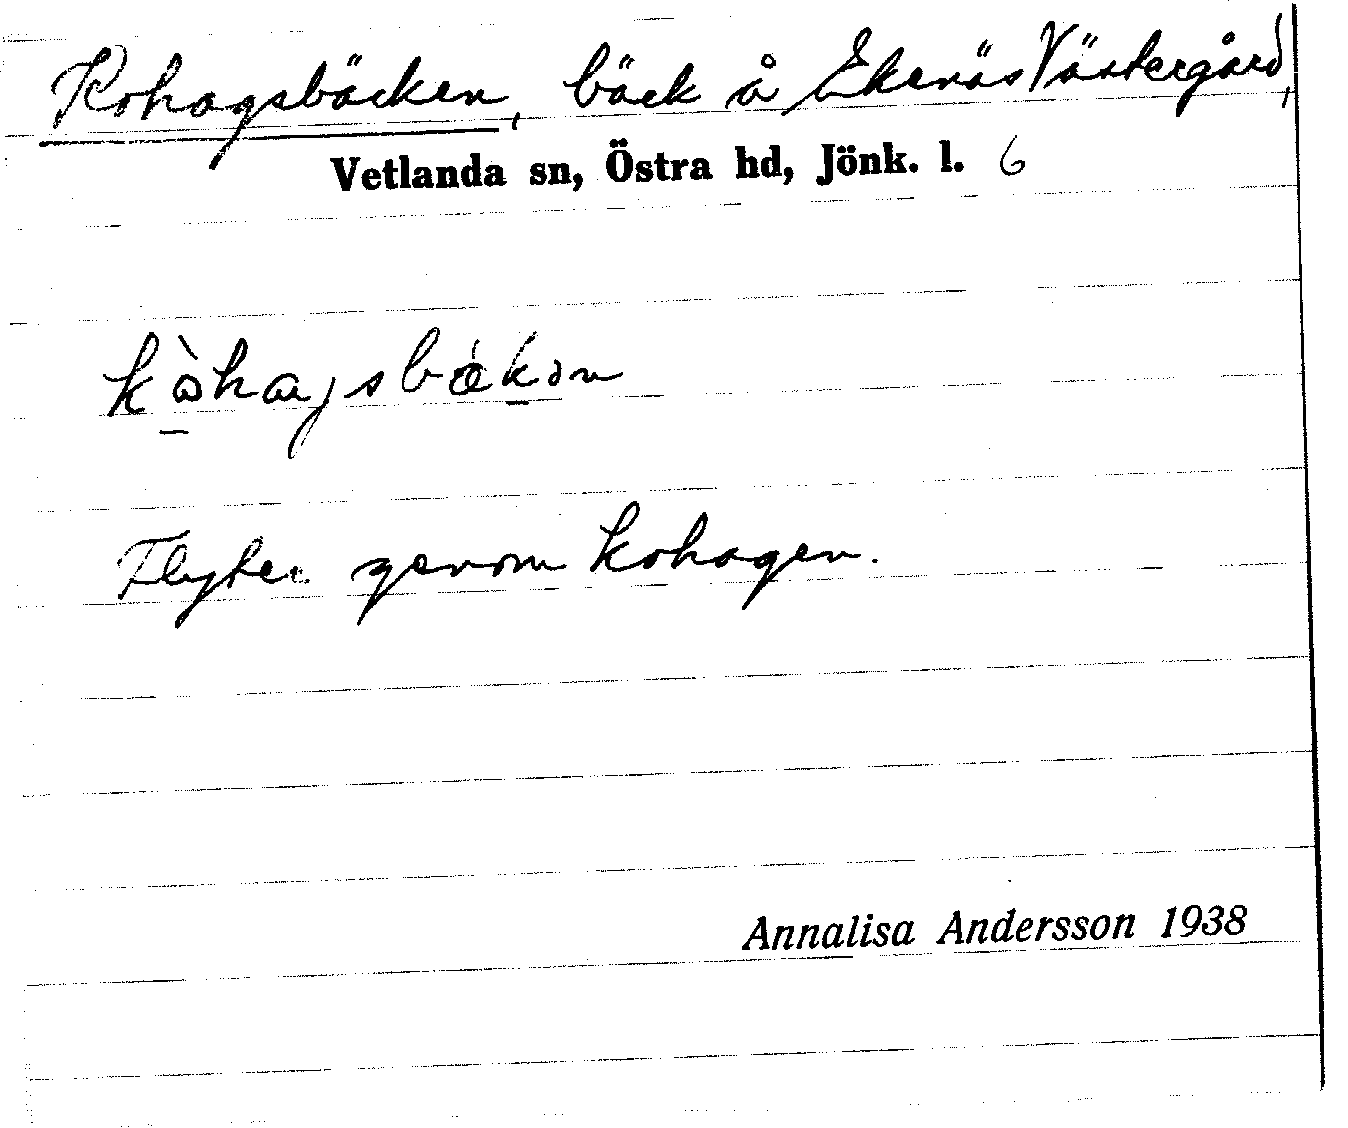 Kohagsbäcken, bäck å Ekenäs Västergård,
Vetlanda sn, Östra hd, Jönk. l. 6
kòhagsbǽkən
Flyter genom kohagen.
Annalisa Andersson 1938